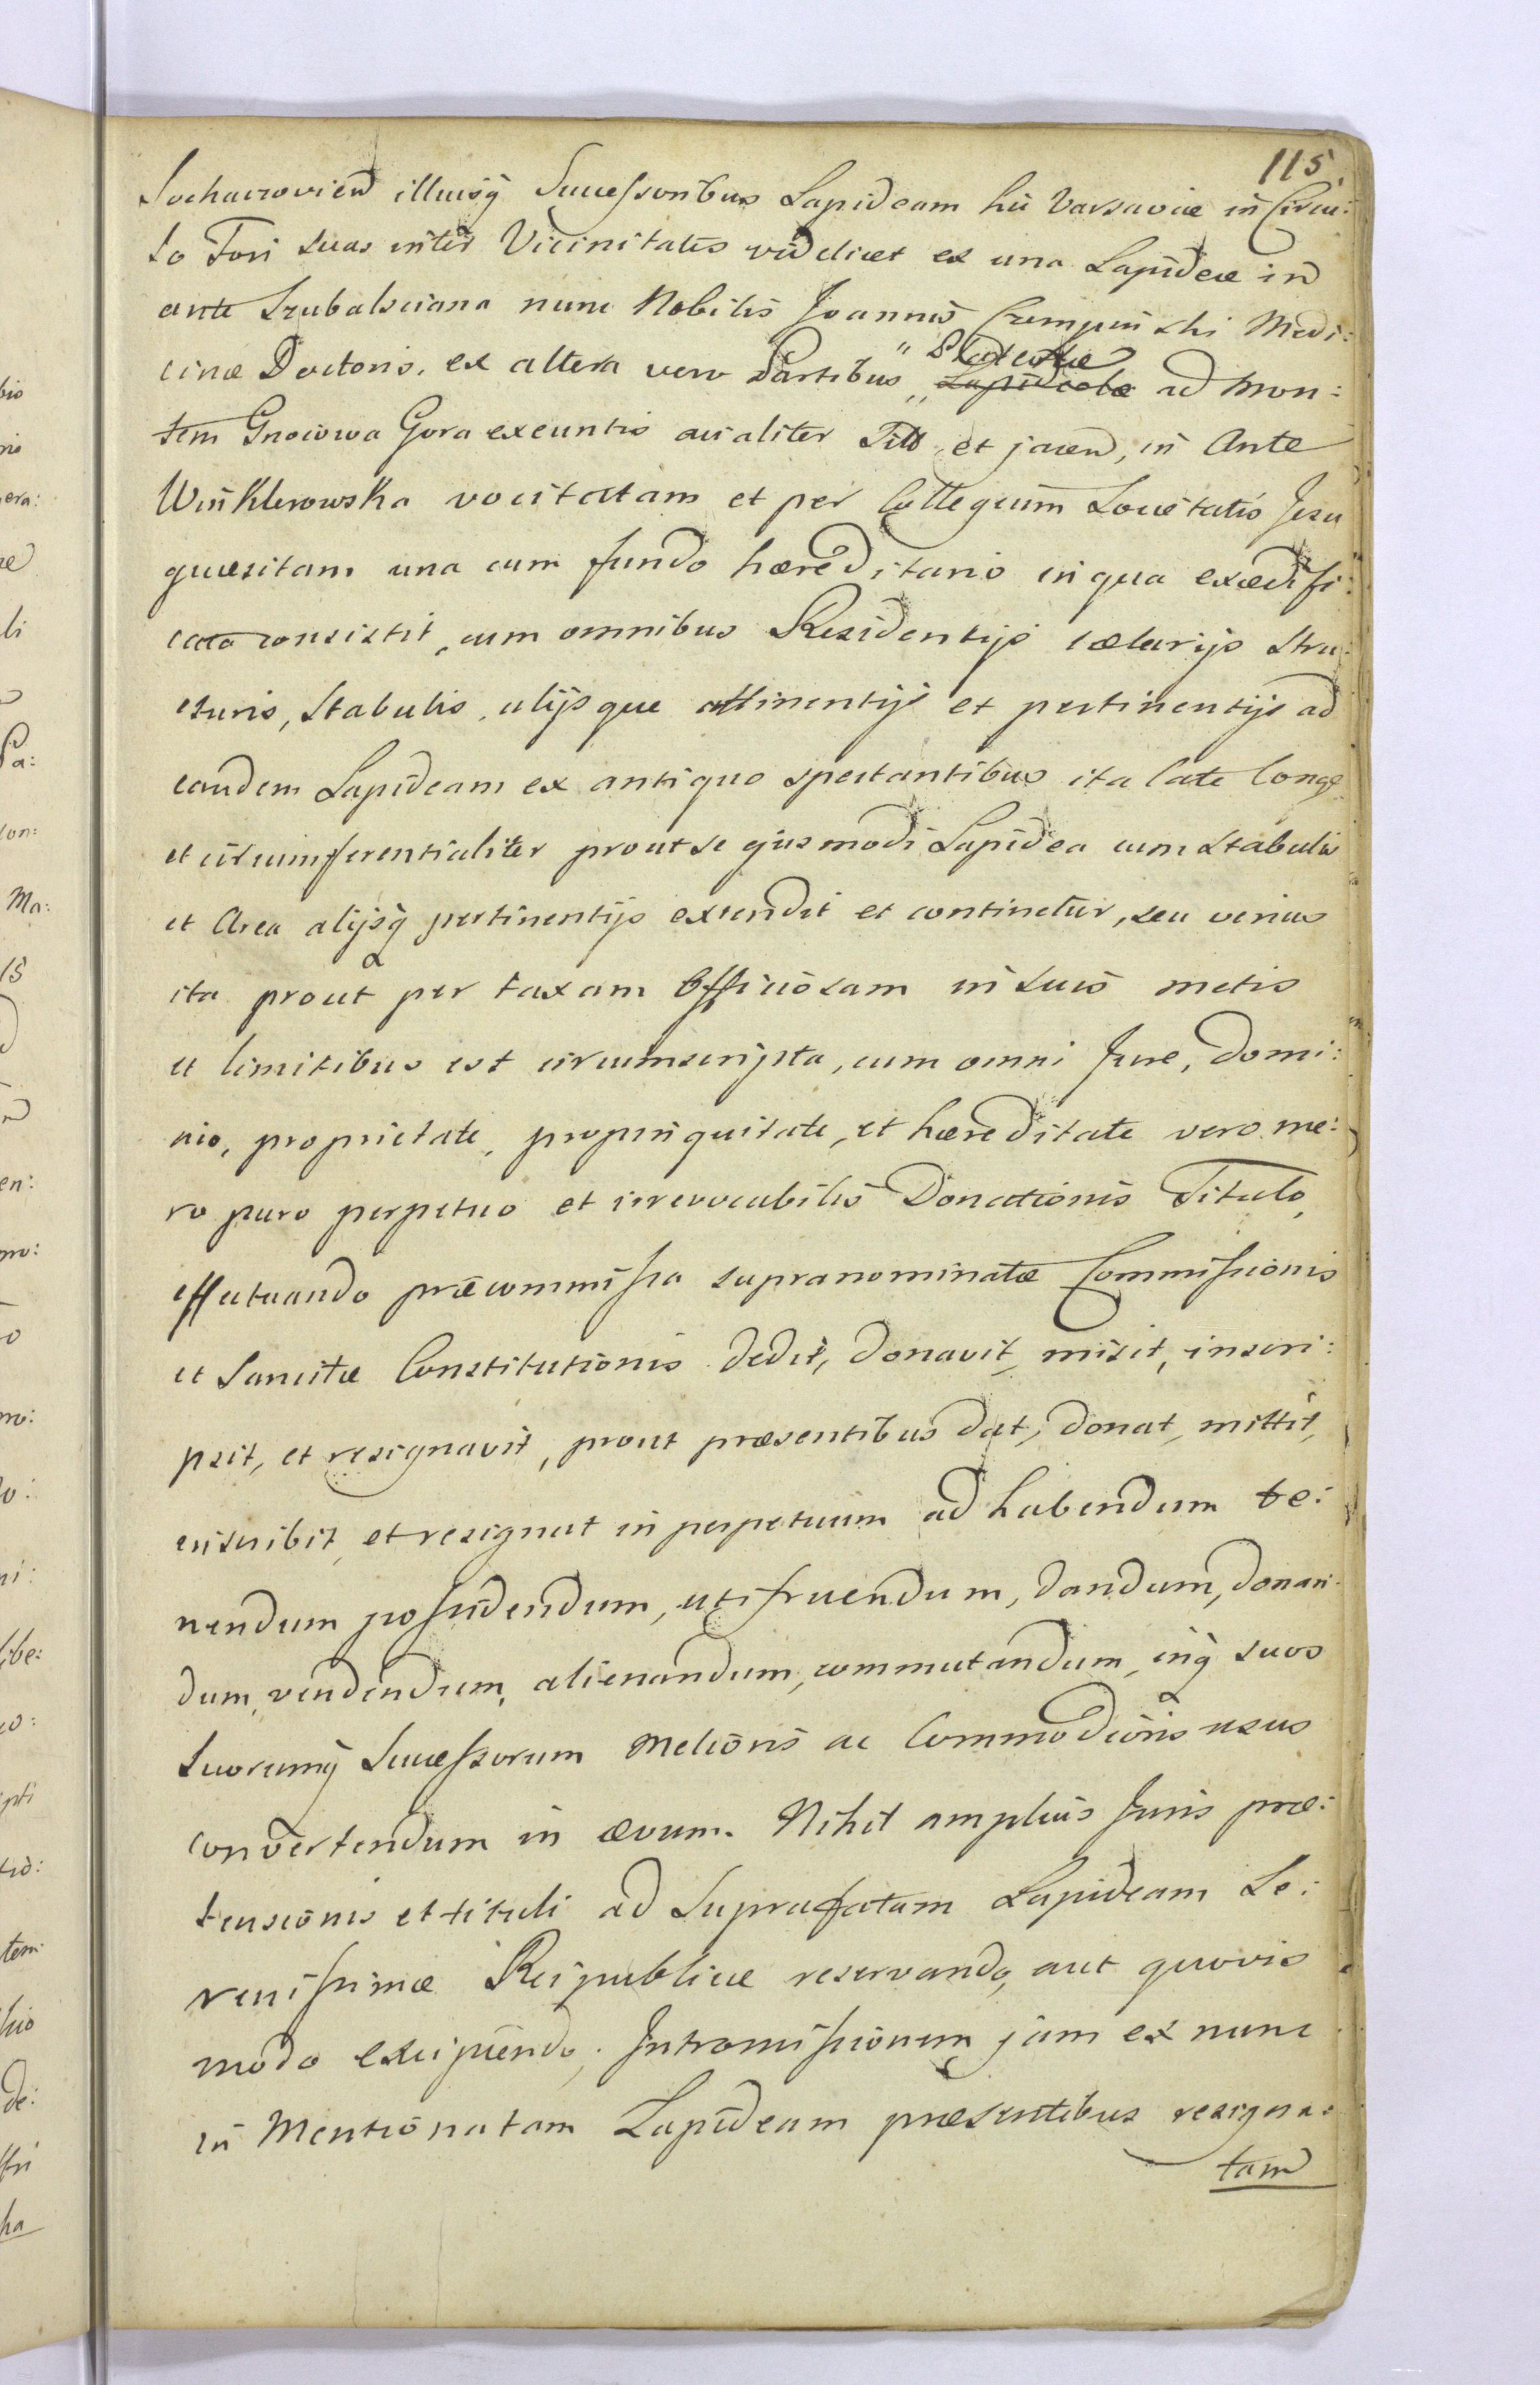 115.
Sochaczovien illiusq̃ Successoribus Lapideam hic Varsaviæ in Circu:
lo Fori suas inter Vicinitates videlicet ex una Lapideæ in
ante Szubalsciana nunc Nobilis Joannis Czempinski Medi:
cinæ Doctoris, ex altera vero Partibus „ Plateolæ
Lapideolæ ad mon:
tem Gnoiowa Gora exeuntis acialiter Sitt et jacen, in Ante
Winklerowska vocitatam et per Collegium Societatis Jesu
quæsitam una cum fundo hæreditario in qua exædifi:
cata consistit, cum omnibus Residentijs cælarijs Stru:
cturis, Stabulis, alijsque attinentijs et pertinentijs ad
eandem Lapideam ex antiquo spectantibus ita late longe
et circumferentialiter prout se ejusmodi Lapidea cum stabulis
et Area alijsq̃ pertinentijs extendit et continetur, seu verius
ita prout per taxam Officiosam in suis metis
et limitibus est circumscripta, cum omni Jure, domi:
nio, proprietate, propinquitate, et hæreditate vero me:
ro puro perpetuo et irrevocabilis Donationis Titulo,
effectuando præcommissa supranominatæ Commissionis
et Sancitæ Constitutionis dedit, donavit, misit, inscri:
psit, et resignavit, prout præsentibus dat, donat, mittit,
inscribit, et resignat in perpetuum ad habendum te:
nendum possidendum, utifruendum, dandum, donan:
dum, vendendum, alienandum, commutandum, inq̃ suos
Suorumq̃ Successorum melioris ac Commodioris usus
convertendum in ævum. Nihil amplius Juris præ:
tensionis et tituli ad Suprafatam Lapideam Se:
renissimæ Reipublicæ reservando, aut quovis
modo excipiendo. Intromissionem jam ex nunc
in Mentionatam Lapideam præsentibus resigna:
tam